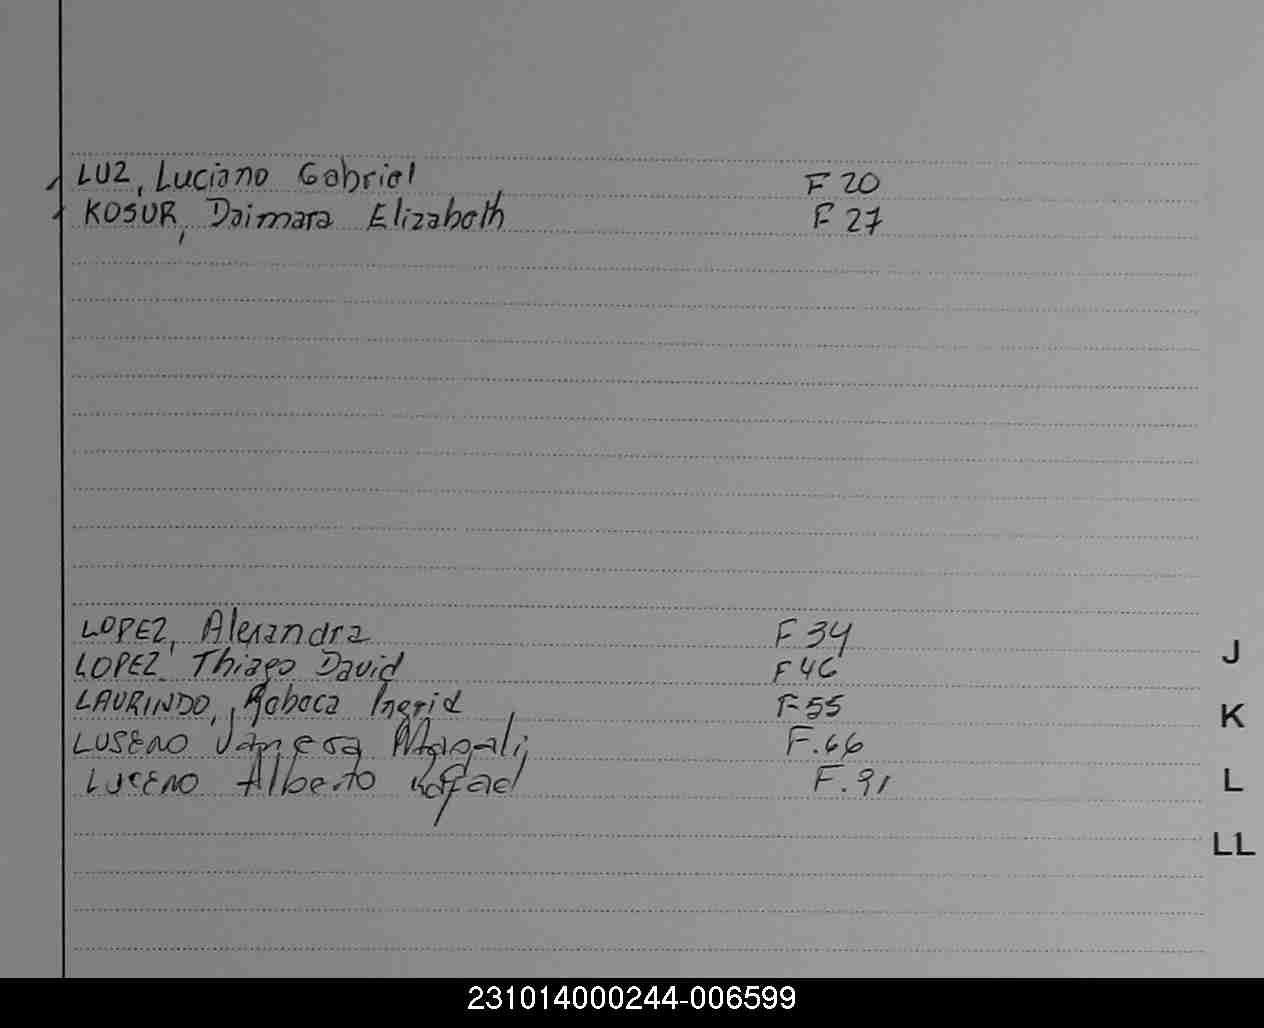 LUZ, Luciano Gabriel F 20
KOSUR, Daimara Elizabeth F 27
LOPEZ, Alexandra F 34
LOPEZ, Thiago David F 46
LAURINDO, Rebeca Ingrid F 55
LUSENO Vanesa Magali F.66
LUCENO Alberto Rafael F.91
J
K
L
LL
231014000244-006599